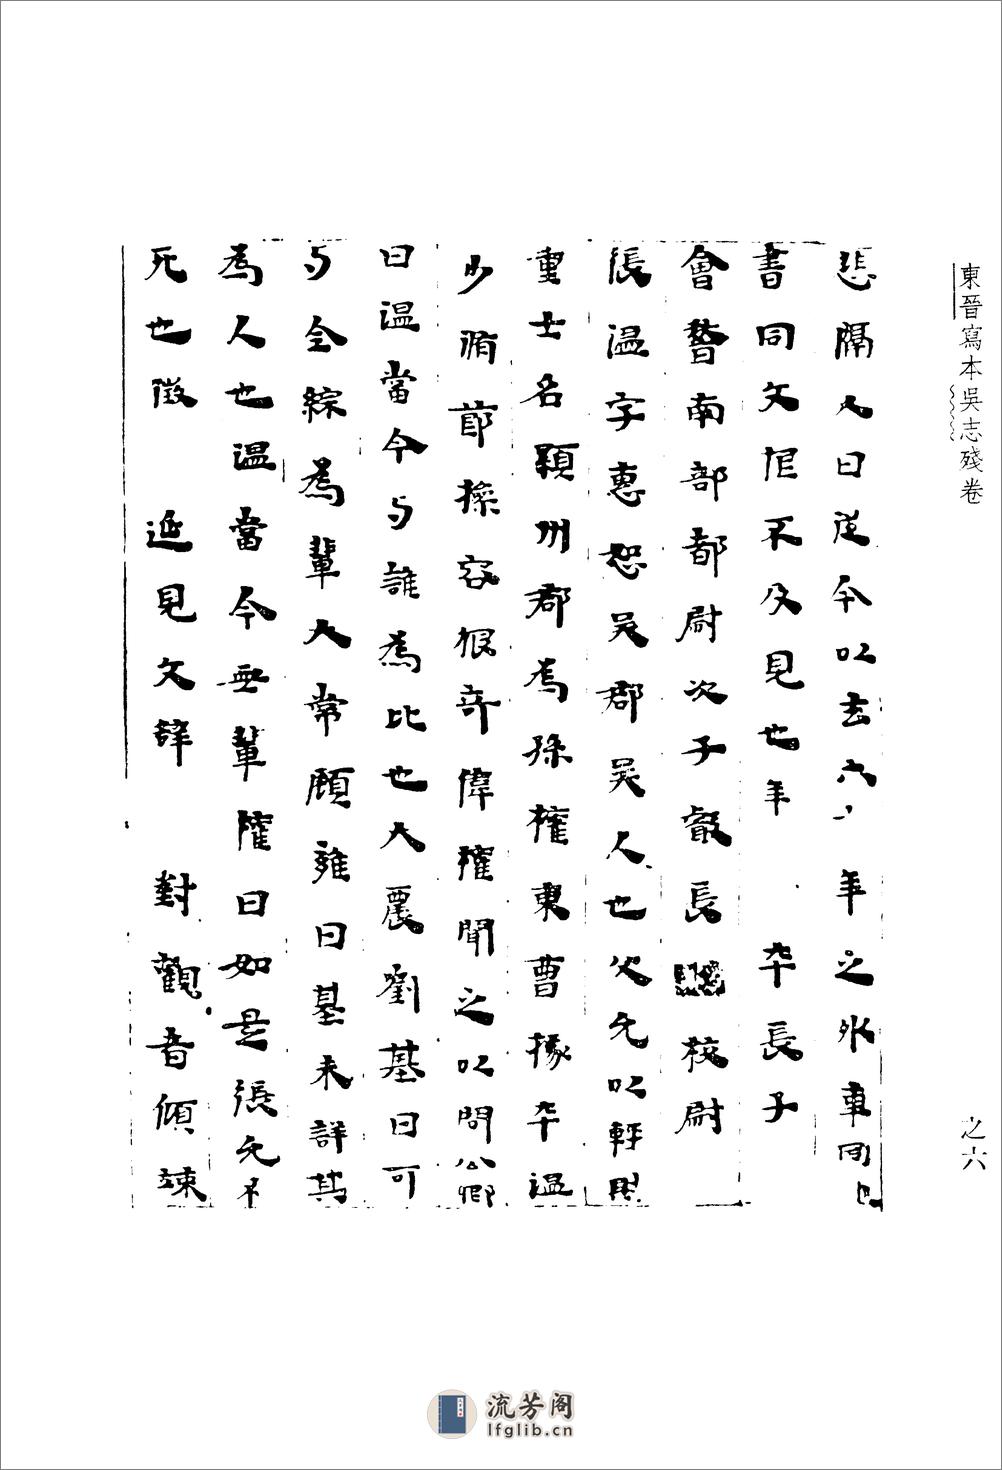 東晉寫本吳志殘卷
之六
悲隔人日從今以去六 年之外車同
書同文恨不及見也年 卒長子
會稽南部都尉次子叡長 校尉
張溫字惠恕吳郡吳人也父允以輕財
重士名顯州郡為孫權東曹掾卒溫
少脩節操容貌奇偉權聞之以問公卿
曰溫當今与誰為比也大農劉基曰可
与全綜為輩大常顧雍曰基未詳其
為人也溫當今無輩權曰如是張允不
死也徵 延見文辭 對觀者傾竦
流芳阁
lfglib.cn